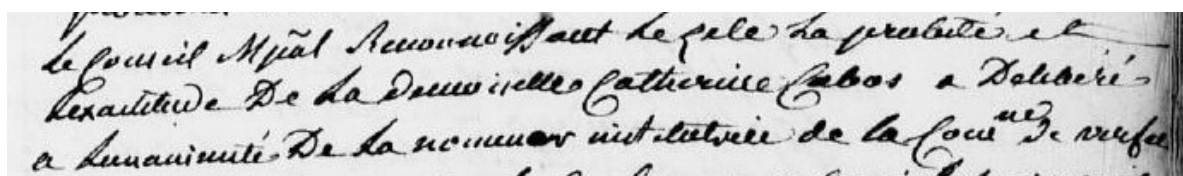 Le Conseil Mpãl Reconnoissant Le zele La probité et
Lexactitude De La demoiselle Catherine Cabos a Deliberé
a Lunanimité De La nommer institutrice de la Com.ne de